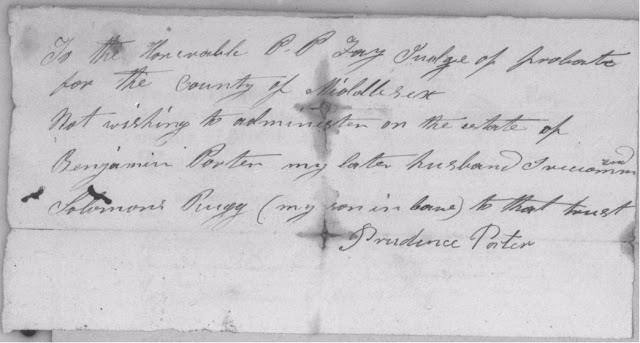 To the Honorable P. P Fay Judge of probate
for the County of Middlesex
Not wishing to administer on the estate of
Benjamin Porter my later husband I recommend
Solomon Rugg (my son in law) to that trust
Prudence Porter